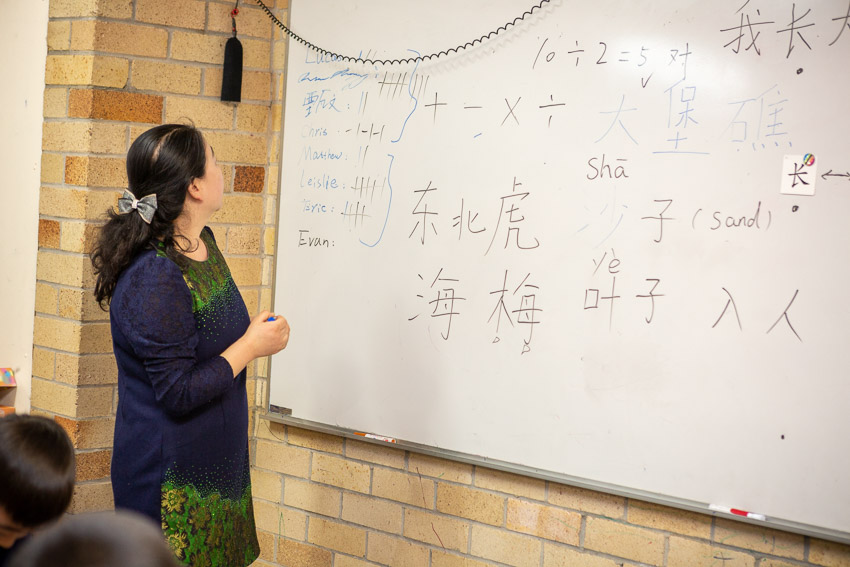 10÷2=5 对
我长大
+ - × ÷
大堡礁
Chris:
Matthew:
Leislie:
Eric:
Evan:
长
Shā
东北虎
沙子 (sand)
yè
海梅
叶子
入人